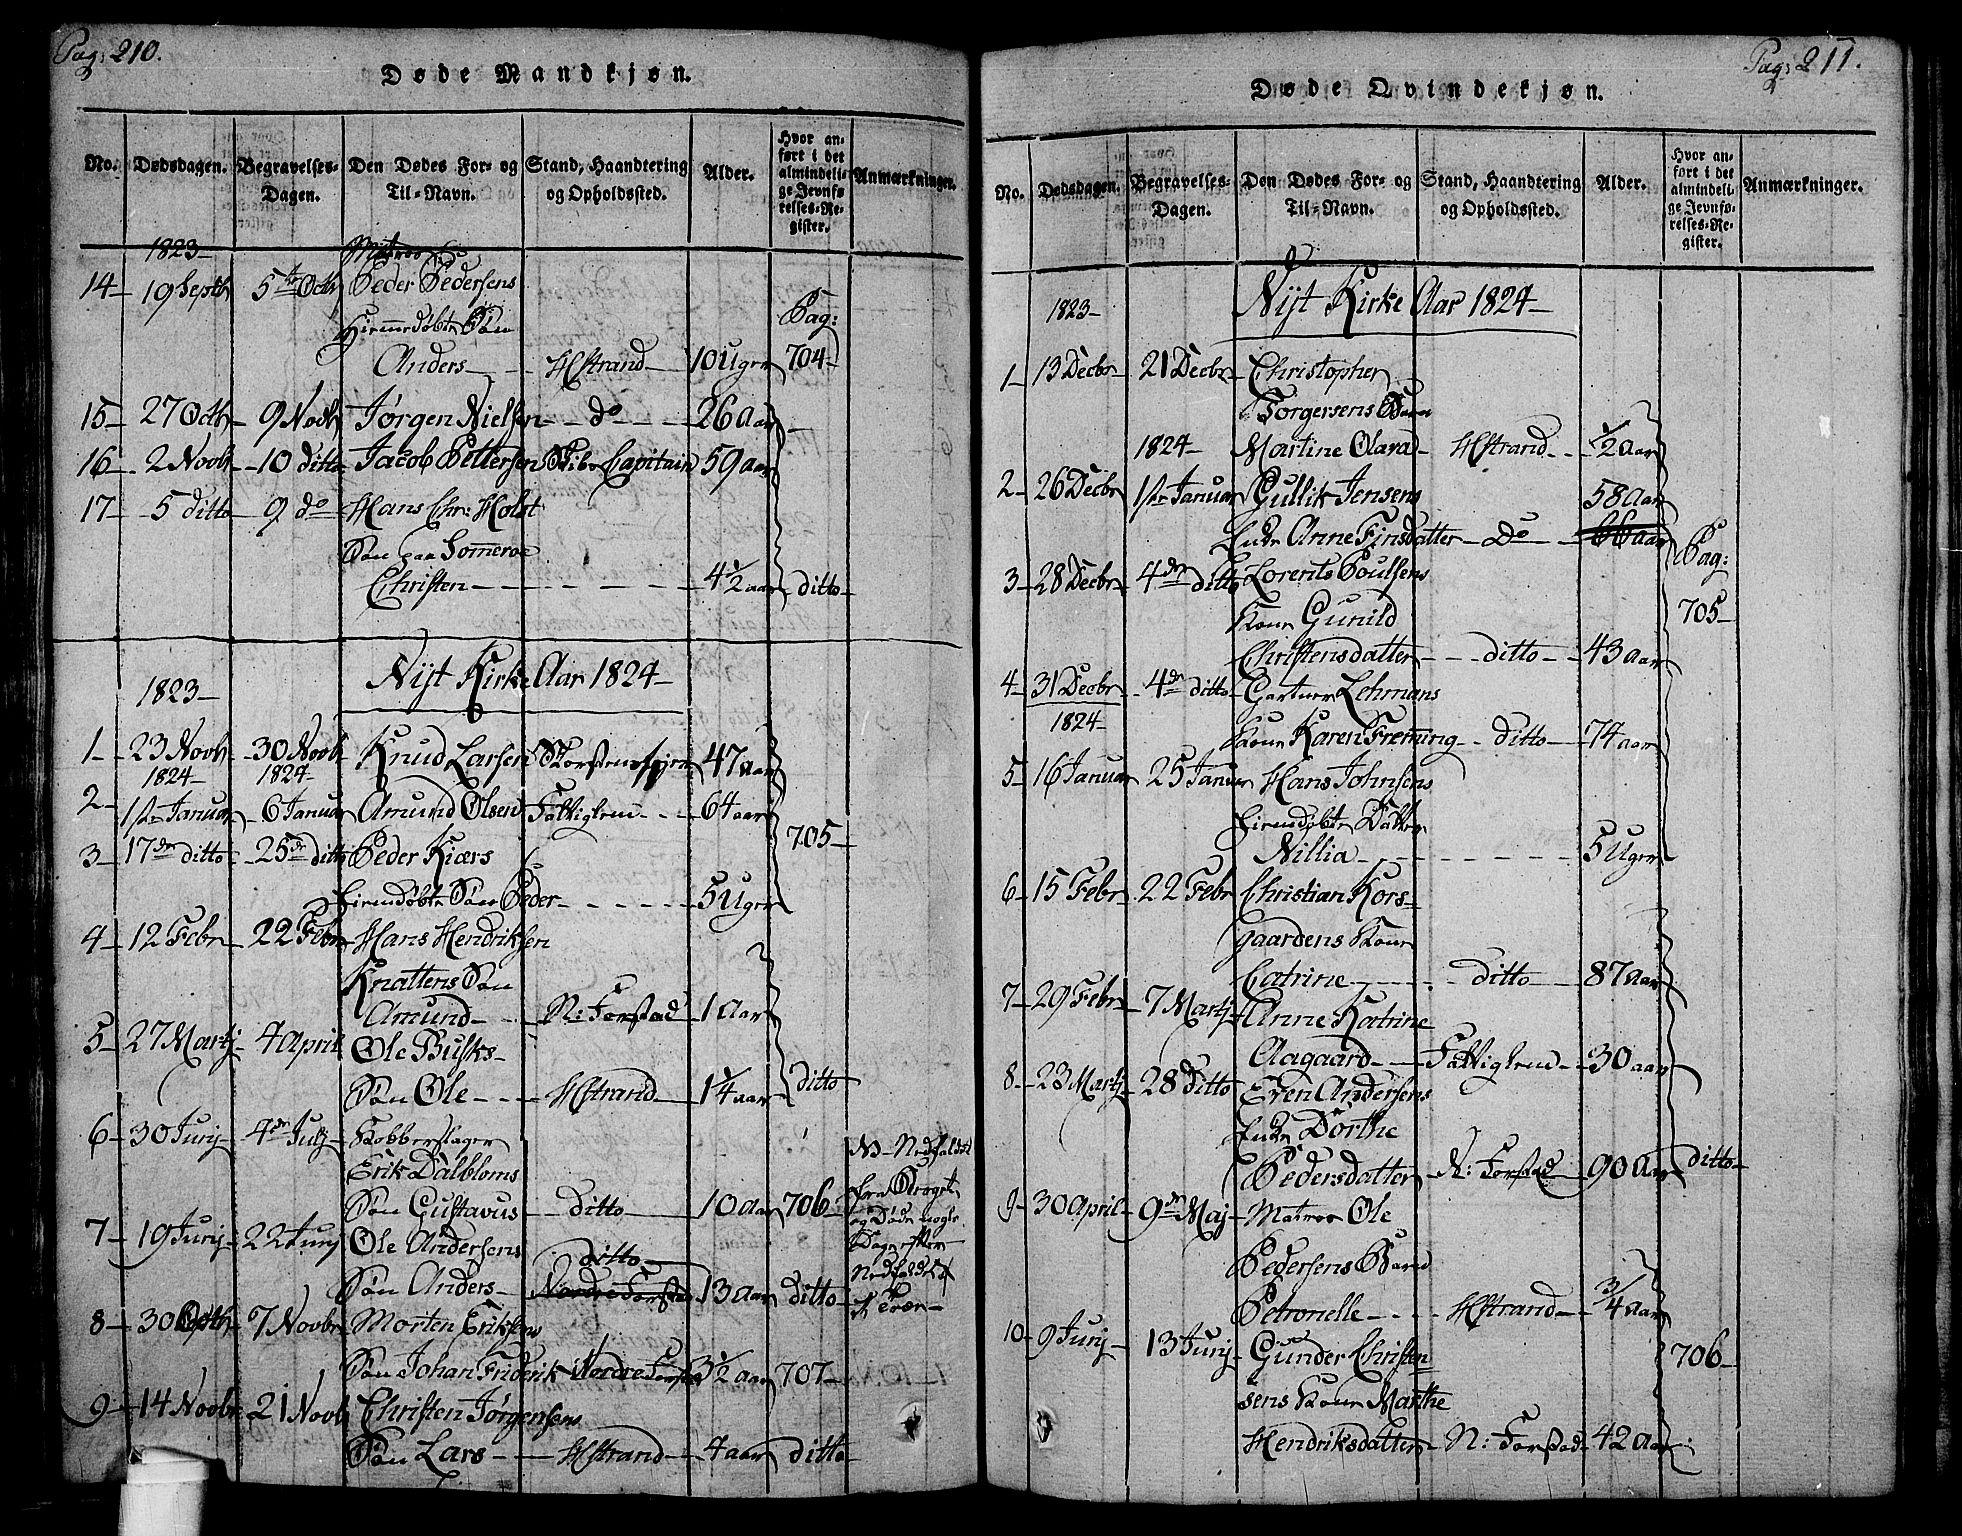 Pag: 210.
Døde Mandkjøn.
No. Dødsdagen. Begravelses-Dagen. Den Dødes For- og Til-Navn. Stand, Haandtering og Opholdssted. Alder. Hvor anført i det almindelige Jevnførelses-Register. Anmærkninger.
1823 Matros
14 19 Septbr 5te Octbr Peder Pedersens
hiemmedøbte Søn Pag:
Anders HStrand 10 Uger 704
15 27 Octbr 9 Novbr Jørgen Nielsen do 26 Aar
16 2 Novbr 10 ditto Jacob Pettersen Skibs Capitain 59 aar
17 5 ditto 9 do Hans Chr: Holst
Søn paa Sommeroe
Christen 4 1/2 aar ditto
Nyt Kirke Aar 1824
1823
1 23 Novbr 30 Novbr Knud Larsen Skorstensfejer 47 aar
1824 1824
2 1ste Januar 6 Januar Amund Olsen Fattiglem 64 aar
3 17de ditto 25de ditto Peder Kiærs 705
hiemdøbte Søn Peder 5 Uger
4 12 Febr 22 Febr Hans Hendriksen
Knattens Søn
Amund N: Forstad 1 Aar
5 27 Martj 4 April Ole Busks
Søn Ole HStrand 1 1/4 aar ditto
6 30 Junj 4de Julj Kobberslager
Erik Dalbloms
Søn Gustavus ditto 10 aar 706
7 19 Junj 22 Junj Ole Andersens ditto
Søn Anders Nordre Forstad 13 aar ditto
NB Nedfaldet
fra Berget
og Døde nogle
Dage efter
Nedfaldet
8 30 Octbr 7 Novbr Morten Eriksens
Søn Johan Friderik Nordre Forstad 3 1/2 aar 707
9 14 Novbr 21 Novbr Christen Jørgensens
Søn Lars HStrand 4 aar ditto
Pag: 211.
Døde Qvindekjøn.
No. Dødsdagen. Begravelses-Dagen. Den Dødes For- og Til-Navn. Stand, Haandtering og Opholdssted. Alder. Hvor anført i det almindelige Jevnførelses-Register. Anmærkninger.
1823 Nyt Kirke Aar 1824
1 13 Decbr 21 Decbr Christopher
Torgersens Barn
1824 Martine Olava HStrand 1/2 aar
2 26 Decbr 1ste Januar Gullik Jensens 58 aar
Enke Anne Finsdatter do 66 aar Pag:
3 28 Decbr 4de ditto Lorents Poulsens
Kone Gunild 705
Christensdatter ditto 43 aar
4 31 Decbr 4de ditto Gartner Lehmans
1824 Kone Karen Fremming ditto 74 aar
5 16 Januar 25 Januar Hans Johnsens
hiemdøbte Datter
Nillia 5 Uger
6 15 Febr 22 Febr Christian Kors-
gaardens Kone
Catrine ditto 87 aar
7 29 Febr 7 Martj Anne Katrine
Aagaard Fattiglem 30 aar
8 23 Martj 28 ditto Even Andersens
Enke Dorthe
Pedersdatter N: Forstad 90 aar ditto
9 30 April 9de Maj Matros Ole
Pedersens Barn
Petronelle HStrand 3/4 aar
10 9 Junj 13 Junj Gunder Christen= 706
sens Kone Marthe
Hendriksdatter N: Forstad 42 aar